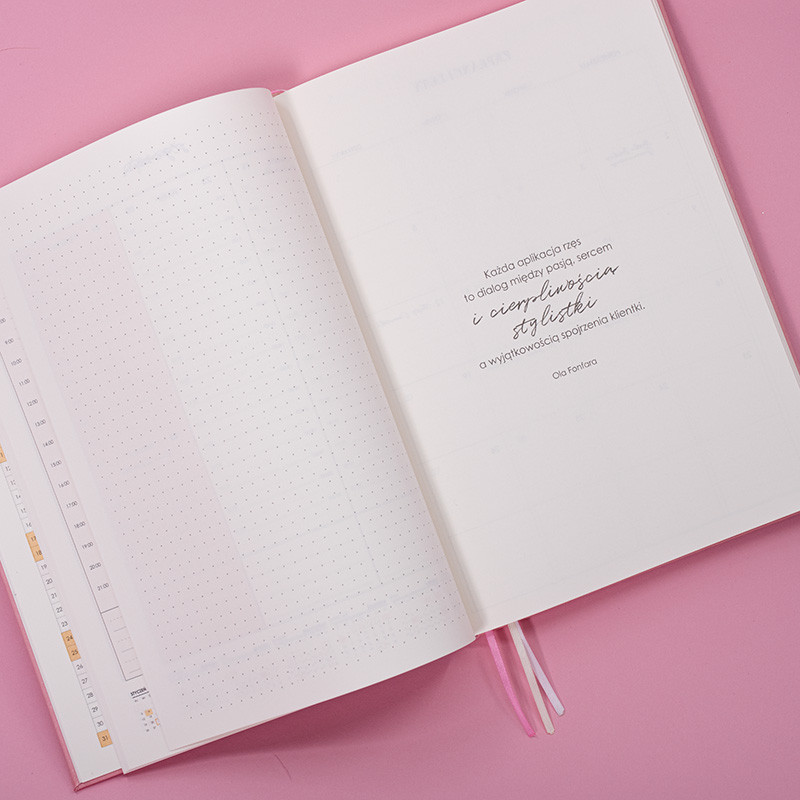 9:00
10:00
11:00
12:00
13:00
14:00
15:00
16:00
17:00
18:00
19:00
20:00
21:00
17
18
19
20
21
22
23
24
25
26
27
28
29
30
31
STYCZEŃ
Każda aplikacja rzęs
to dialog między pasją, sercem
i cierpliwością
stylistki
a wyjątkowością spojrzenia klientki.
Ola Fontara